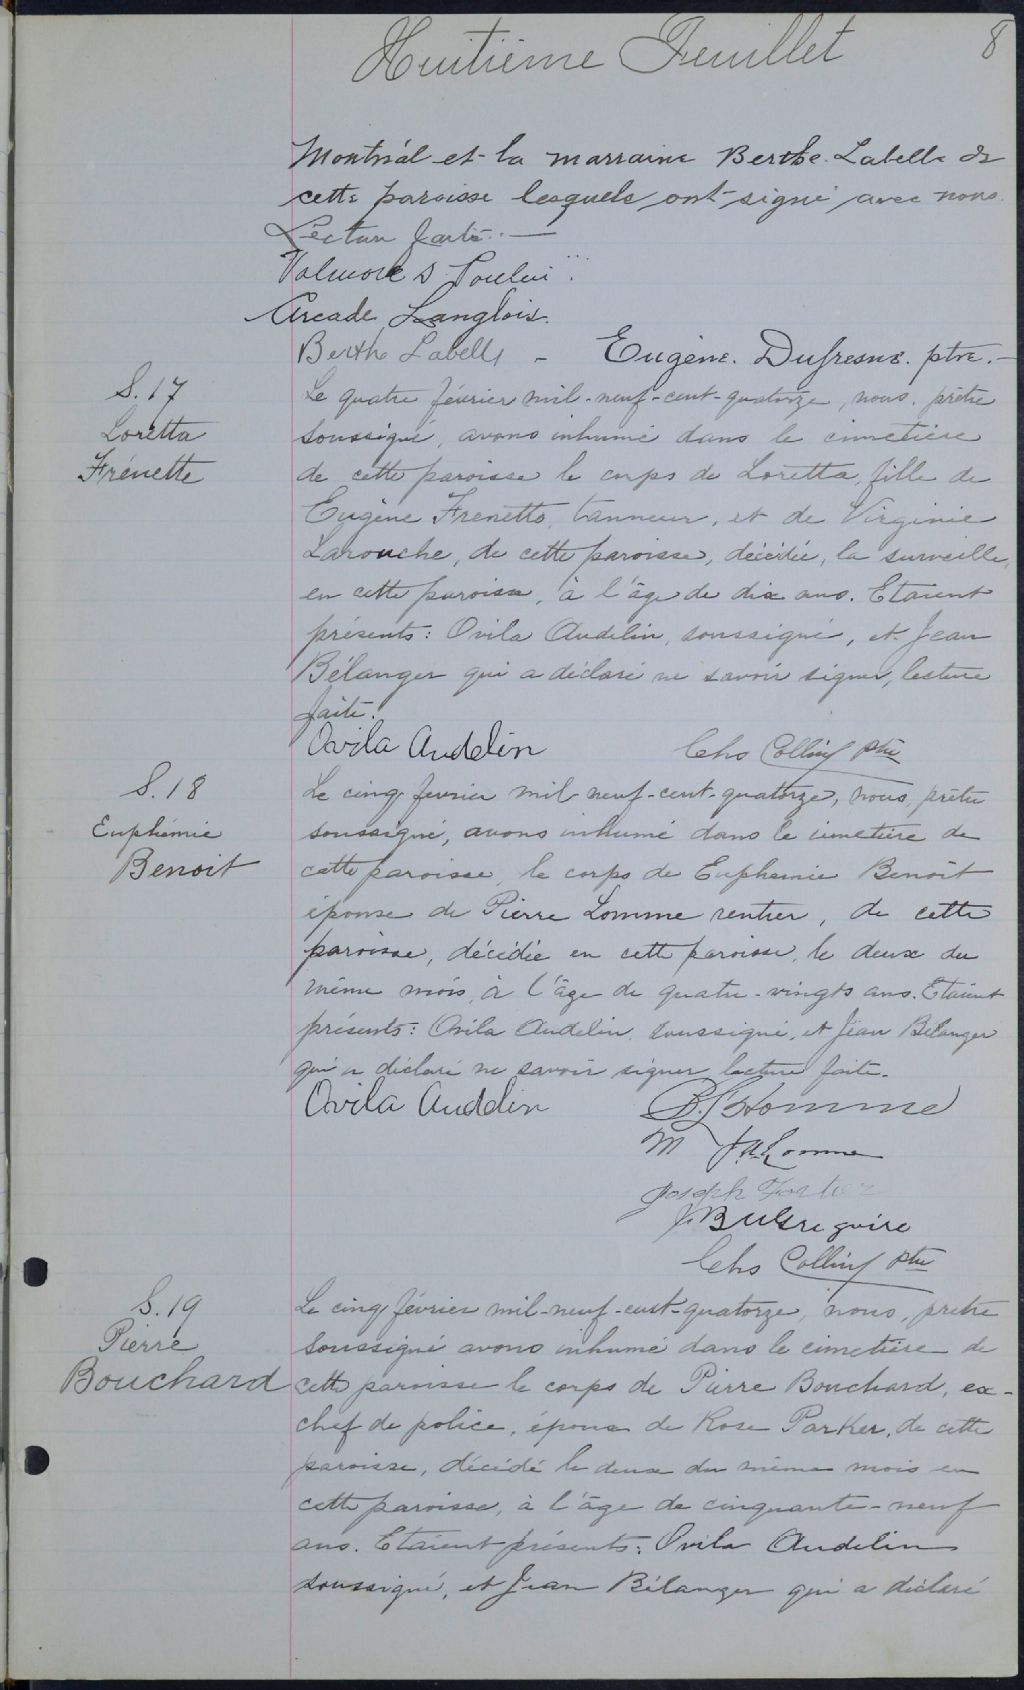 Huitième Feuillet
8
Montréal et la marraine Berthe Labelle de
cette paroisse lesquels ont signé avec nous.
Lecture faite.
Valmore S. Poulin
Arcade Langlois.
Berthe Labelle - Eugène. Dufresne. ptre.
S. 17
Loretta
Frénette
Le quatre février mil-neuf-cent-quatorze, nous, prêtre
soussigné, avons inhumé dans le cimetière
de cette paroisse le corps de Loretta, fille de
Eugène Frenette, tanneur, et de Virginie
Larouche, de cette paroisse, décédée, la surveille,
en cette paroisse, à l'âge de dix ans. Etaient
présents: Ovila Audelin, soussigné, et Jean
Bélanger qui a déclaré ne savoir signer, lecture
faite.
Ovila Audelin Chs Collin ptre
S. 18
Euphémie
Benoit
Le cinq fevrier mil neuf-cent-quatorze, nous, prêtre
soussigné, avons inhumé dans le cimetière de
cette paroisse, le corps de Euphemie Benoît
épouse de Pierre Lomme rentier, de cette
paroisse, décédée en cette paroisse, le deux du
même mois, à l'âge de quatre-vingts ans. Etaient
présents: Ovila Audelin, soussigné, et Jean Bélanger
qui a déclaré ne savoir signer, lecture faite.
Ovila Audelin P. L'Homme
M Lomme
Joseph Fortier
Gregoire
Chs Collin ptre
S. 19
Pierre
Bouchard
Le cinq février mil-neuf-cent-quatorze, nous, prêtre
soussigné avons inhumé dans le cimetière de
cette paroisse le corps de Pierre Bouchard, ex-
chef de police, époux de Rose Parker, de cette
paroisse, décédé le deux du même mois en
cette paroisse, à l'âge de cinquante-neuf
ans. Etaient présents: Ovila Audelin
soussigné, et Jean Bélanger qui a déclaré